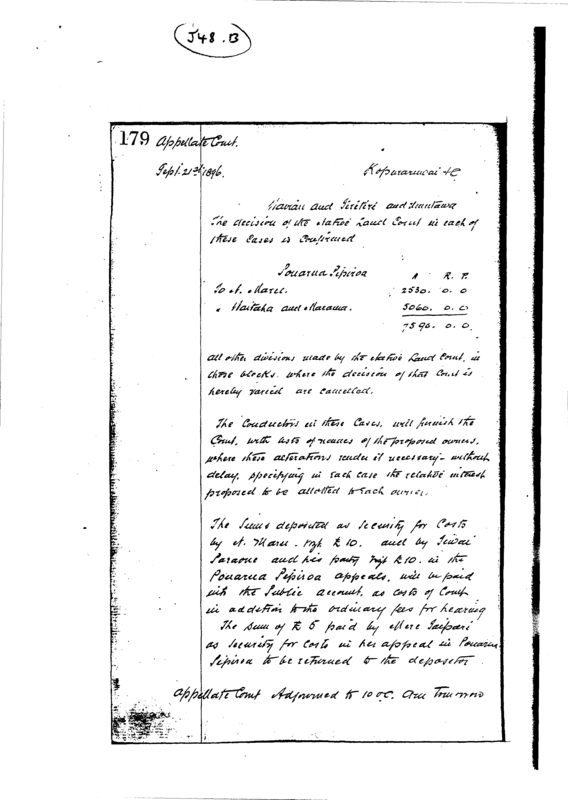 J48.B
179 Appellate Court.
Sept. 21st 1896. Kopuraruwai &c
Wavian and Tiritiri and
The decision of the Native Land Court in each of
these Cases is Confirmed
Pouarua Pipiroa A. R. P.
To N. Maru. 2530. 0. 0
" Waitaha and Marama. 5060. 0. 0
7590. 0. 0.
All other divisions made by the Native Land Court, in
those blocks, where the decision of that Court is
hereby varied are cancelled.
The Conductors in these Cases, will furnish the
Court, with lists of names of the proposed owners,
where these alterations render it necessary - without
delay, specifying in each case the relative interest
proposed to be allotted to each owner.
The Sums deposited as Security for Costs
by N. Maru. £10. and by
Paraone and his party £10. in the
Pouarua Pipiroa appeals, will be paid
into the Public account, as costs of Court
in addition to the ordinary fees for hearing
The sum of £5 paid by Mere Taipari
as Security for Costs in her appeal in Pouarua
Pipiroa to be returned to the depositor
Appellate Court Adjourned to 10 o'C. am Tomorrow